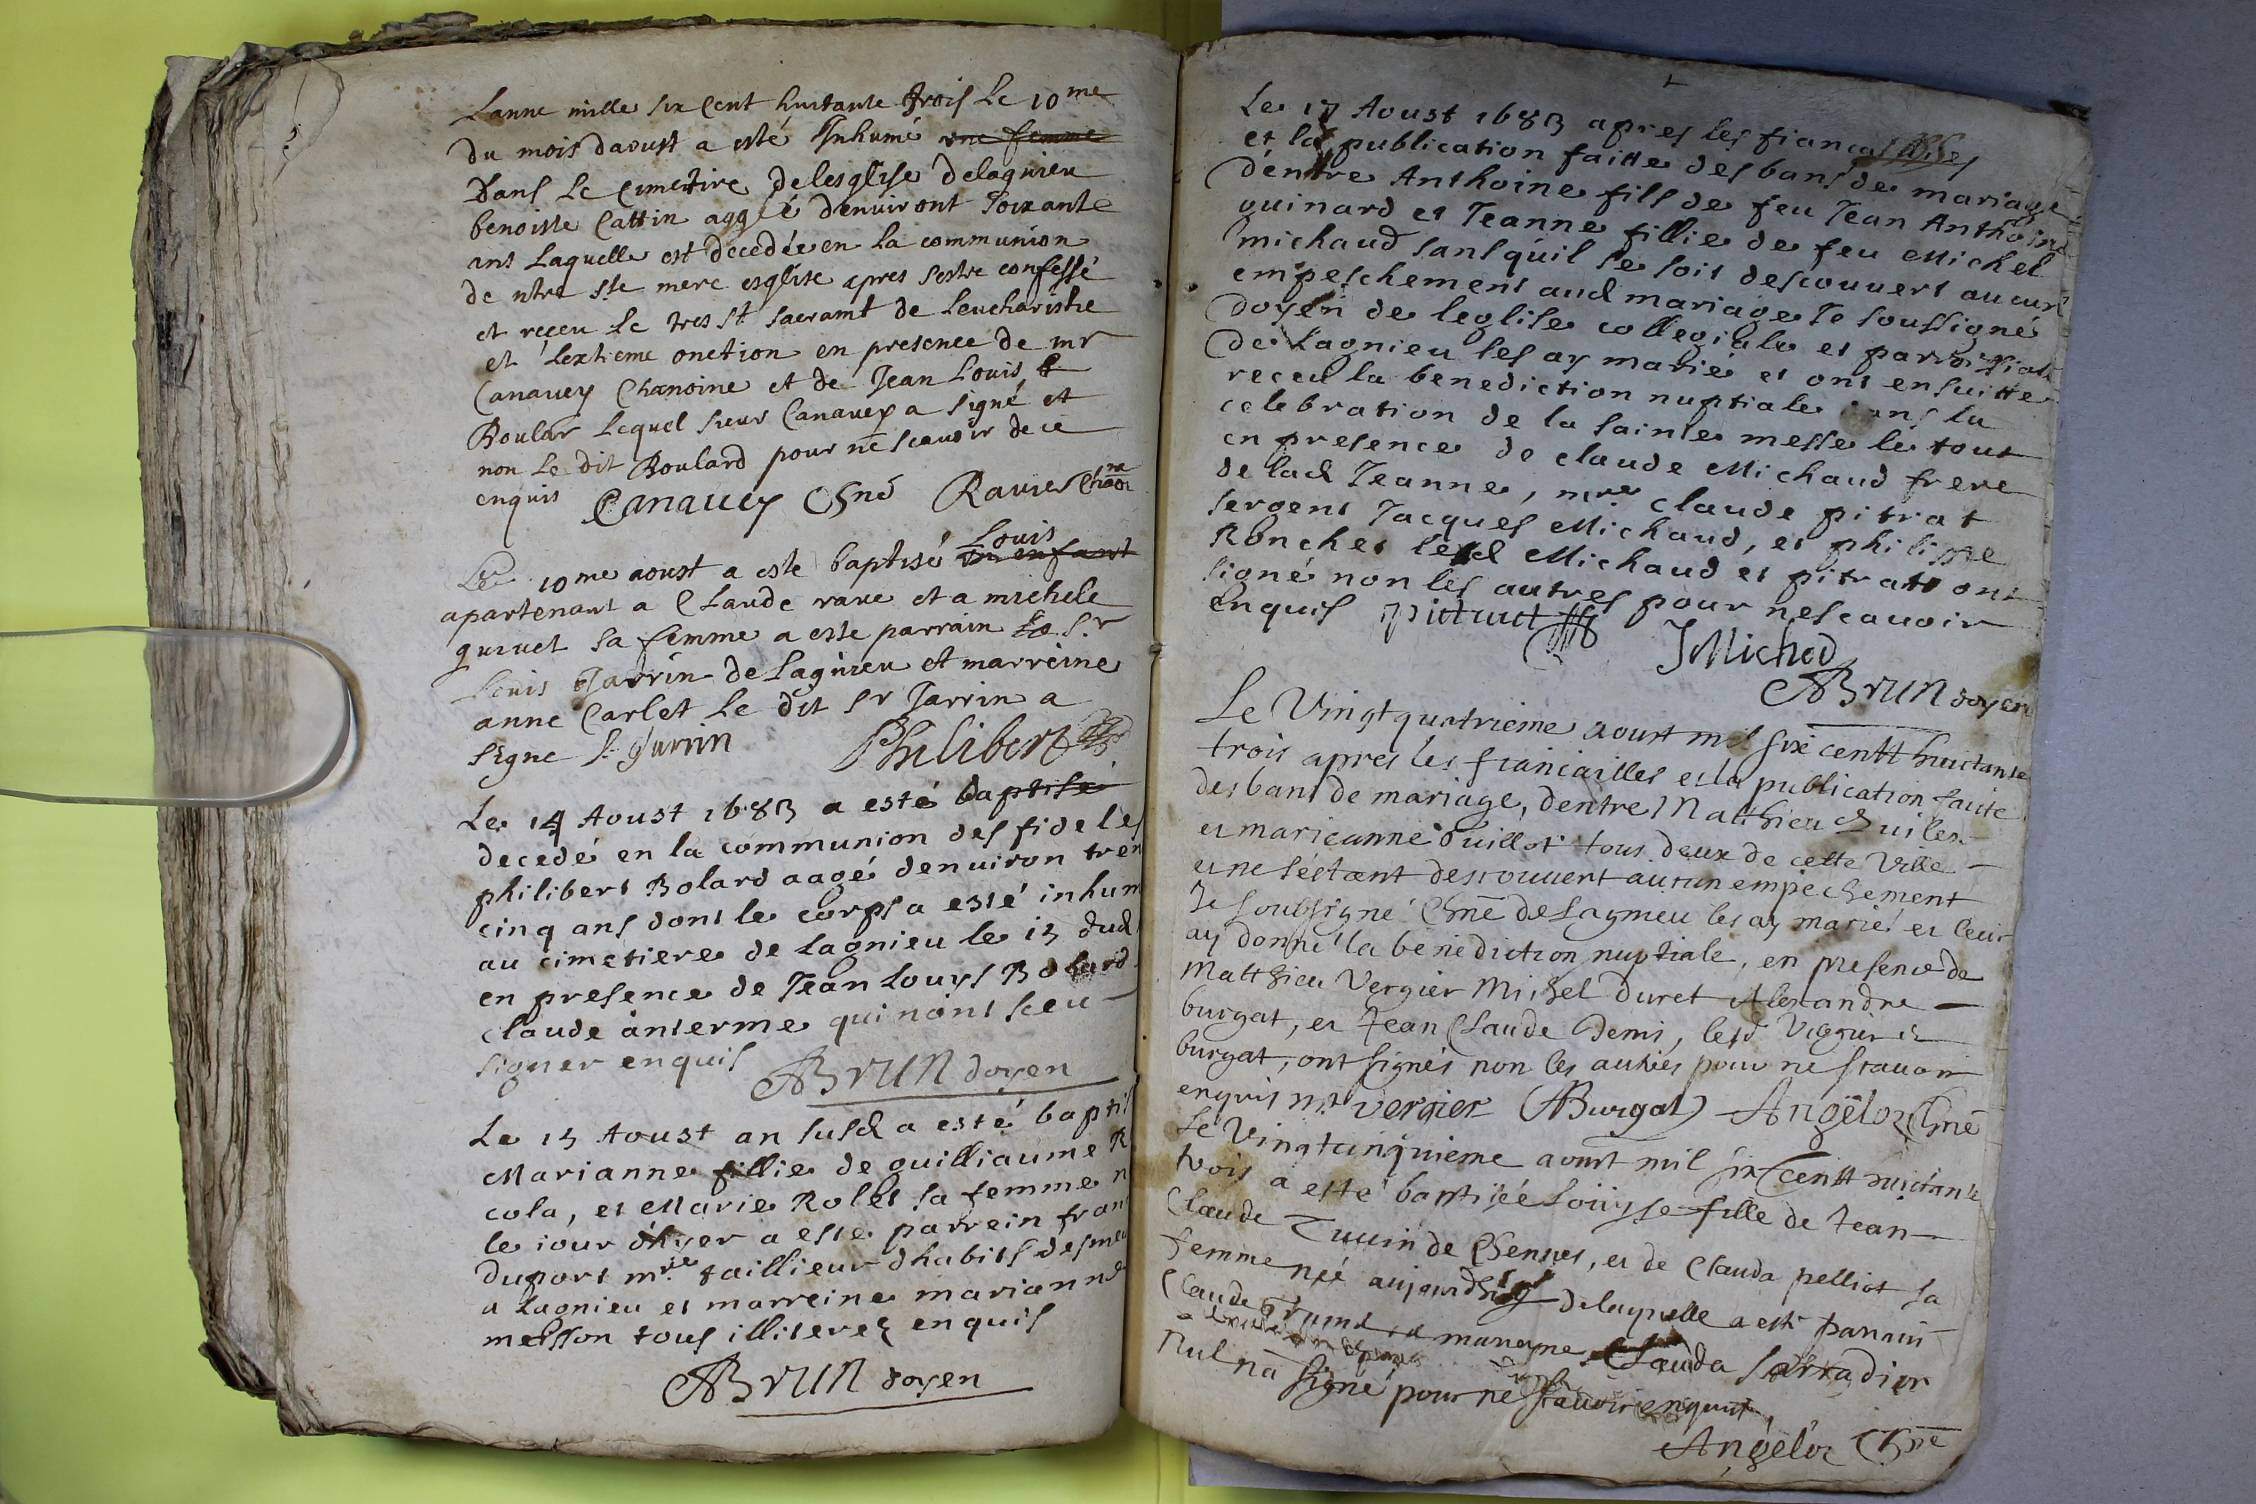 Lanne mille six Cent huitante trois Le 10me
du mois daoust a esté Inhumé une femme
Dans Le Cimetire delesglise delagnieu
benoiste Cattin aggée denviront soixante
ans Laquelle est decedée en la communion
de ntre ste mere esglise apres sestre confessé
et reçeu Le tres st sacramt de Leucharistie
et lextreme onction en presence de mr
Canavey Chanoine et de Jean Louis
Boular Lequel sieur Canavey a signé et
non Le dit Boulard pour ne scavoir de ce
enquis Canavey Chne Ravier
Le 10me aoust a este baptisé Louis un enfant
apartenant a Claude rave et a michele
guruet sa femme a este parrain Le Sr
Louis Jarrin de Lagnieu et marreine
anne Carlet Le dit Sr Jarrin a
signe L. Jarrin Philibert
Le 14 Aoust 1683 a esté baptisé
decedé en la communion des fideles
philibert Bolard aagé denviron tren
cinq ans dont le corps a esté inhum
au cimetiere de Lagnieu le 15 dud
en presence de Jean Louys Bolard
claude anterme qui nont sceu
signer enquis ABrun doyen
Le 15 Aoust an susd a esté bapti
Marianne fillie de guilliaume R
cola, et Marie Rolet sa femme n
le iour dhyer a este parrein fran
duport mre taillieur dhabits desmeu
a Lagnieu et marreine marianne
messon tous illiterez enquis
ABrun doyen
Le 17 Aoust 1683 apres les fiancailles
et la publication faitte des bans de mariage
dentre Anthoine fils de feu Jean Anthoine
guinard et Jeanne fillie de feu Michel
michaud sans quil se soit descouvert aucun
empeschement aud mariage Je soussigné
doyen de leglise collegiale et parroissiale
de Lagnieu les ay mariés et ont ensuitte
receu la benediction nuptiale dans la
celebration de la sainte messe le tout
en presence de claude Michaud frere
de lad Jeanne, mre claude pitrat
sergent Jacques Michaud, et philippe
Ronchet lesd Michaud et pitrat ont
signé non les autres pour ne scavoir
enquis pitrat JMichod
ABrun doyen
Le Vingtquatrieme aoust mil six centt huictante
trois apres les fiancailles et la publication faite
des bans de mariage, dentre Matthieu
et marieanne Duillot tous deux de cette ville
et ne sestant descouvert aucun empechement
Je soubsigné Chne de Laymeu les ay marié et leur
ay donné la benediction nuptiale, en presence de
Matthieu Vergier Michel Duret Alexandre
burgat, et Jean Claude Demis, lesd Vergier &
burgat, ont signés non les autres pour ne scavoir
enquis M vergier ABurgat Angeloz Chne
Le Vingtcinquieme aoust mil six Centt huictante
trois a esté baptisée Loüysse fille de Jean
Claude Tuvin de Chennes, et de Clauda pelliot sa
femme née aujourdhuy delaquelle a esté parrain
Claude et marreyne Clauda sarradier
Nul na signé pour ne scavoir enquis
Angeloz Chne